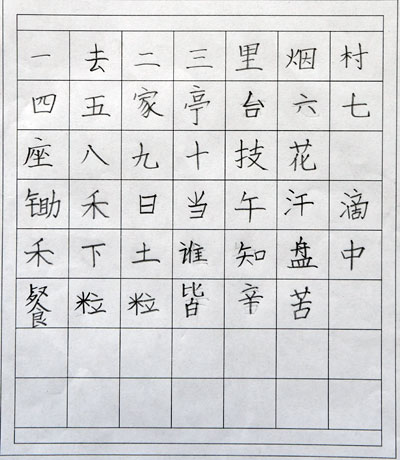 一去二三里烟村
四五家亭台六七
座八九十技花
锄禾日当午汗滴
禾下土谁知盘中
餐粒粒皆辛苦